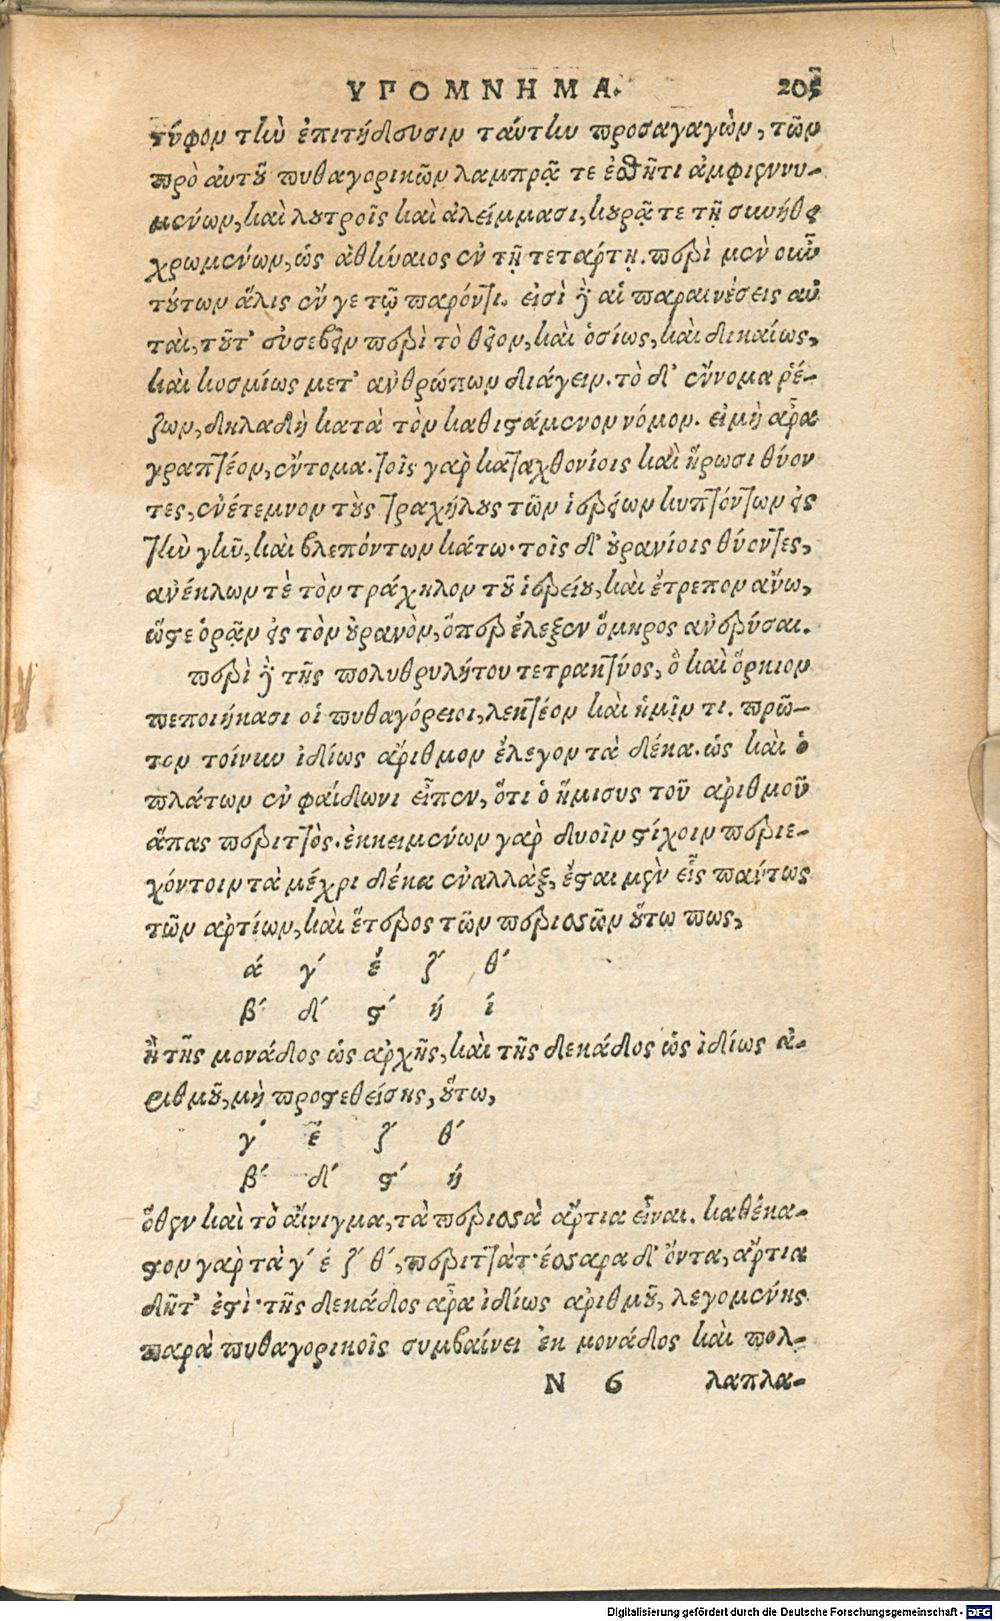 ΥΠΟΜΝΗΜΑ. 205
τύφον τὴν ἐπιτήδευσιν ταύτην προσαγαγὼν, τῶν
πρὸ αὐτοῦ πυθαγορικῶν λαμπρᾷ τε ἐσθῆτι ἀμφιεννυ-
μένων, καὶ λουτροῖς καὶ ἀλείμμασι, κουρᾷ τε τῇ συνήθει
χρωμένων, ὡς ἀθήναιος ἐν τῇ τετάρτῃ. περὶ μὲν οὖν
τούτων ἅλις ἔν γε τῷ παρόντι. εἰσὶ δὲ αἱ παραινέσεις αὗ
ται, τοῦτ' εὐσεβεῖν περὶ τὸ θεῖον, καὶ ὁσίως, καὶ δικαίως,
καὶ κοσμίως μετ' ἀνθρώπων διάγειν. τὸ δ' ἔννομα ῥέ-
ζων, δηλαδὴ κατὰ τὸν καθιστάμενον νόμον. εἰ μὴ ἄρα
γραπτέον, ἔντομα. τοῖς γὰρ καταχθονίοις καὶ ἥρωσι θύον
τες, ἐνέτεμνον τοὺς τραχήλους τῶν ἱερείων κυπτόντων εἰς
τὴν γῆν, καὶ βλεπόντων κάτω· τοῖς δ' οὐρανίοις θύοντες,
ἀνέκλων τὲ τὸν τράχηλον τοῦ ἱερείου, καὶ ἔτρεπον ἄνω,
ὥστε ὁρᾷν εἰς τὸν οὐρανὸν, ὅπερ ἔλεξεν ὅμηρος ἀνερύσαι.
περὶ δὲ τῆς πολυθρυλήτου τετρακτύος, ὃ καὶ ὅρκιον
πεποιήκασι οἱ πυθαγόρειοι, λεκτέον καὶ ἡμῖν τι. πρῶ-
τον τοίνυν ἰδίως ἄριθμον ἔλεγον τὰ δέκα. ὡς καὶ ὁ
πλάτων ἐν φαίδωνι εἶπεν, ὅτι ὁ ἥμισυς τοῦ ἀριθμοῦ
ἅπας περιττὸς. ἐκκειμένων γὰρ δυοῖν στίχοιν περιε-
χόντοιν τὰ μέχρι δέκα ἐναλλὰξ, ἔσται μὲν εἷς πάντως
τῶν ἀρτίων, καὶ ἕτερος τῶν περισσῶν οὕτω πως,
ά γ΄ έ ζ΄ θ΄
β΄ δ΄ ϛ΄ ή ί
ἢ τῆς μονάδος ὡς ἀρχῆς, καὶ τῆς δεκάδος ὡς ἰδίως ἀ-
ριθμοῦ, μὴ προστεθείσης, οὕτω,
γ΄ έ ζ΄ θ΄
β΄ δ΄ ϛ΄ ή
ὅθεν καὶ τὸ αἴνιγμα, τὰ περισσὰ ἄρτια εἶναι. καθέκα-
στον γὰρ τὰ γ΄ έ ζ΄ θ΄, περιττὰ τ' έσσαρα δ' ὄντα, ἄρτια
δῆτ' ἐστὶ· τῆς δεκάδος ἄρα ἰδίως ἀριθμοῦ, λεγομένης
παρὰ πυθαγορικοῖς συμβαίνει ἐκ μονάδος καὶ πολ-
N 6 λαπλα-
Digitalisierung gefördert durch die Deutsche Forschungsgemeinschaft - DFG